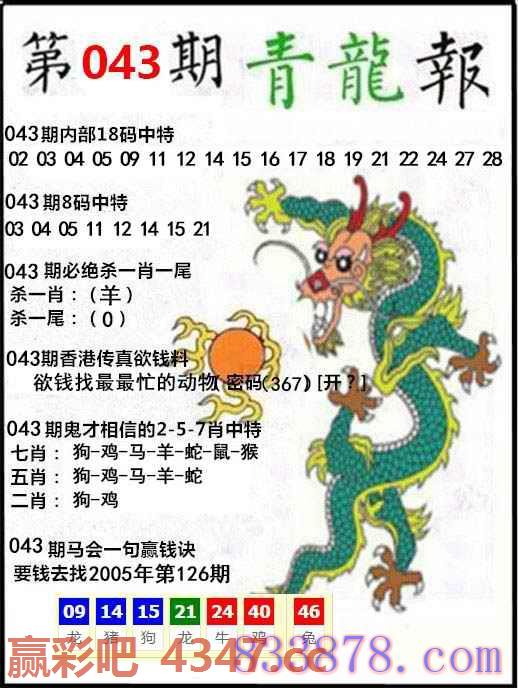 第043期青龍報
043期内部18码中特
02 03 04 05 09 11 12 14 15 16 17 18 19 21 22 24 27 28
043期8码中特
03 04 05 11 12 14 15 21
043期必绝杀一肖一尾
杀一肖：(羊)
杀一尾：(0)
043期香港传真欲钱料
欲钱找最最忙的动物 密码(367)[开?]
043期鬼才相信的2-5-7肖中特
七肖：狗-鸡-马-羊-蛇-鼠-猴
五肖：狗-鸡-马-羊-蛇
二肖：狗-鸡
043期马会一句赢钱诀
要钱去找2005年第126期
09 14 15 21 24 40 46
龙 猪 狗 龙 牛 鸡 兔
赢彩吧 4347.cc
833878.com